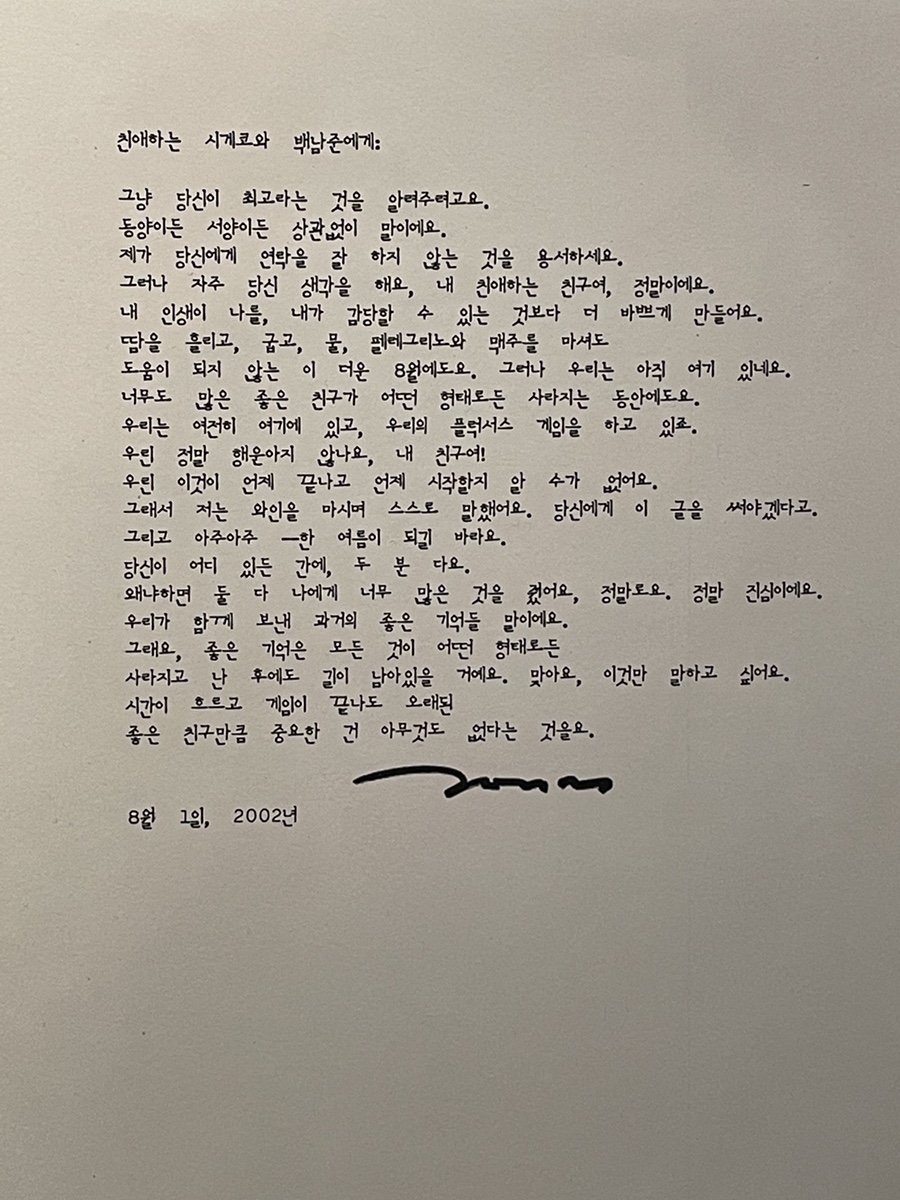 친애하는 시게코와 백남준에게:
그냥 당신이 최고라는 것을 알려주려고요.
동양이든 서양이든 상관없이 말이에요.
제가 당신에게 연락을 잘 하지 않는 것을 용서하세요.
그러나 자주 당신 생각을 해요, 내 친애하는 친구여, 정말이에요.
내 인생이 나를, 내가 감당할 수 있는 것보다 더 바쁘게 만들어요.
땀을 흘리고, 굽고, 물, 펠레그리노와 맥주를 마셔도
도움이 되지 않는 이 더운 8월에도요. 그러나 우리는 아직 여기 있네요.
너무도 많은 좋은 친구가 어떤 형태로든 사라지는 동안에도요.
우리는 여전히 여기에 있고, 우리의 플럭서스 게임을 하고 있죠.
우린 정말 행운아지 않나요, 내 친구여!
우린 이것이 언제 끝나고 언제 시작할지 알 수가 없어요.
그래서 저는 와인을 마시며 스스로 말했어요. 당신에게 이 글을 써야겠다고.
그리고 아주아주 —한 여름이 되길 바라요.
당신이 어디 있든 간에, 두 분 다요.
왜냐하면 둘 다 나에게 너무 많은 것을 줬어요, 정말로요. 정말 진심이에요.
우리가 함께 보낸 과거의 좋은 기억들 말이에요.
그래요, 좋은 기억은 모든 것이 어떤 형태로든
사라지고 난 후에도 길이 남아있을 거예요. 맞아요, 이것만 말하고 싶어요.
시간이 흐르고 게임이 끝나도 오래된
좋은 친구만큼 중요한 건 아무것도 없다는 것을요.
Jonas
8월 1일, 2002년